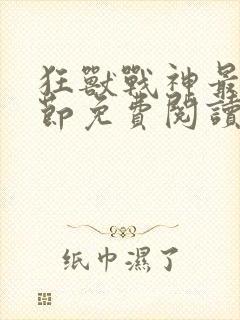 狂獸戰神最
節免費閱讀
纸巾濕了